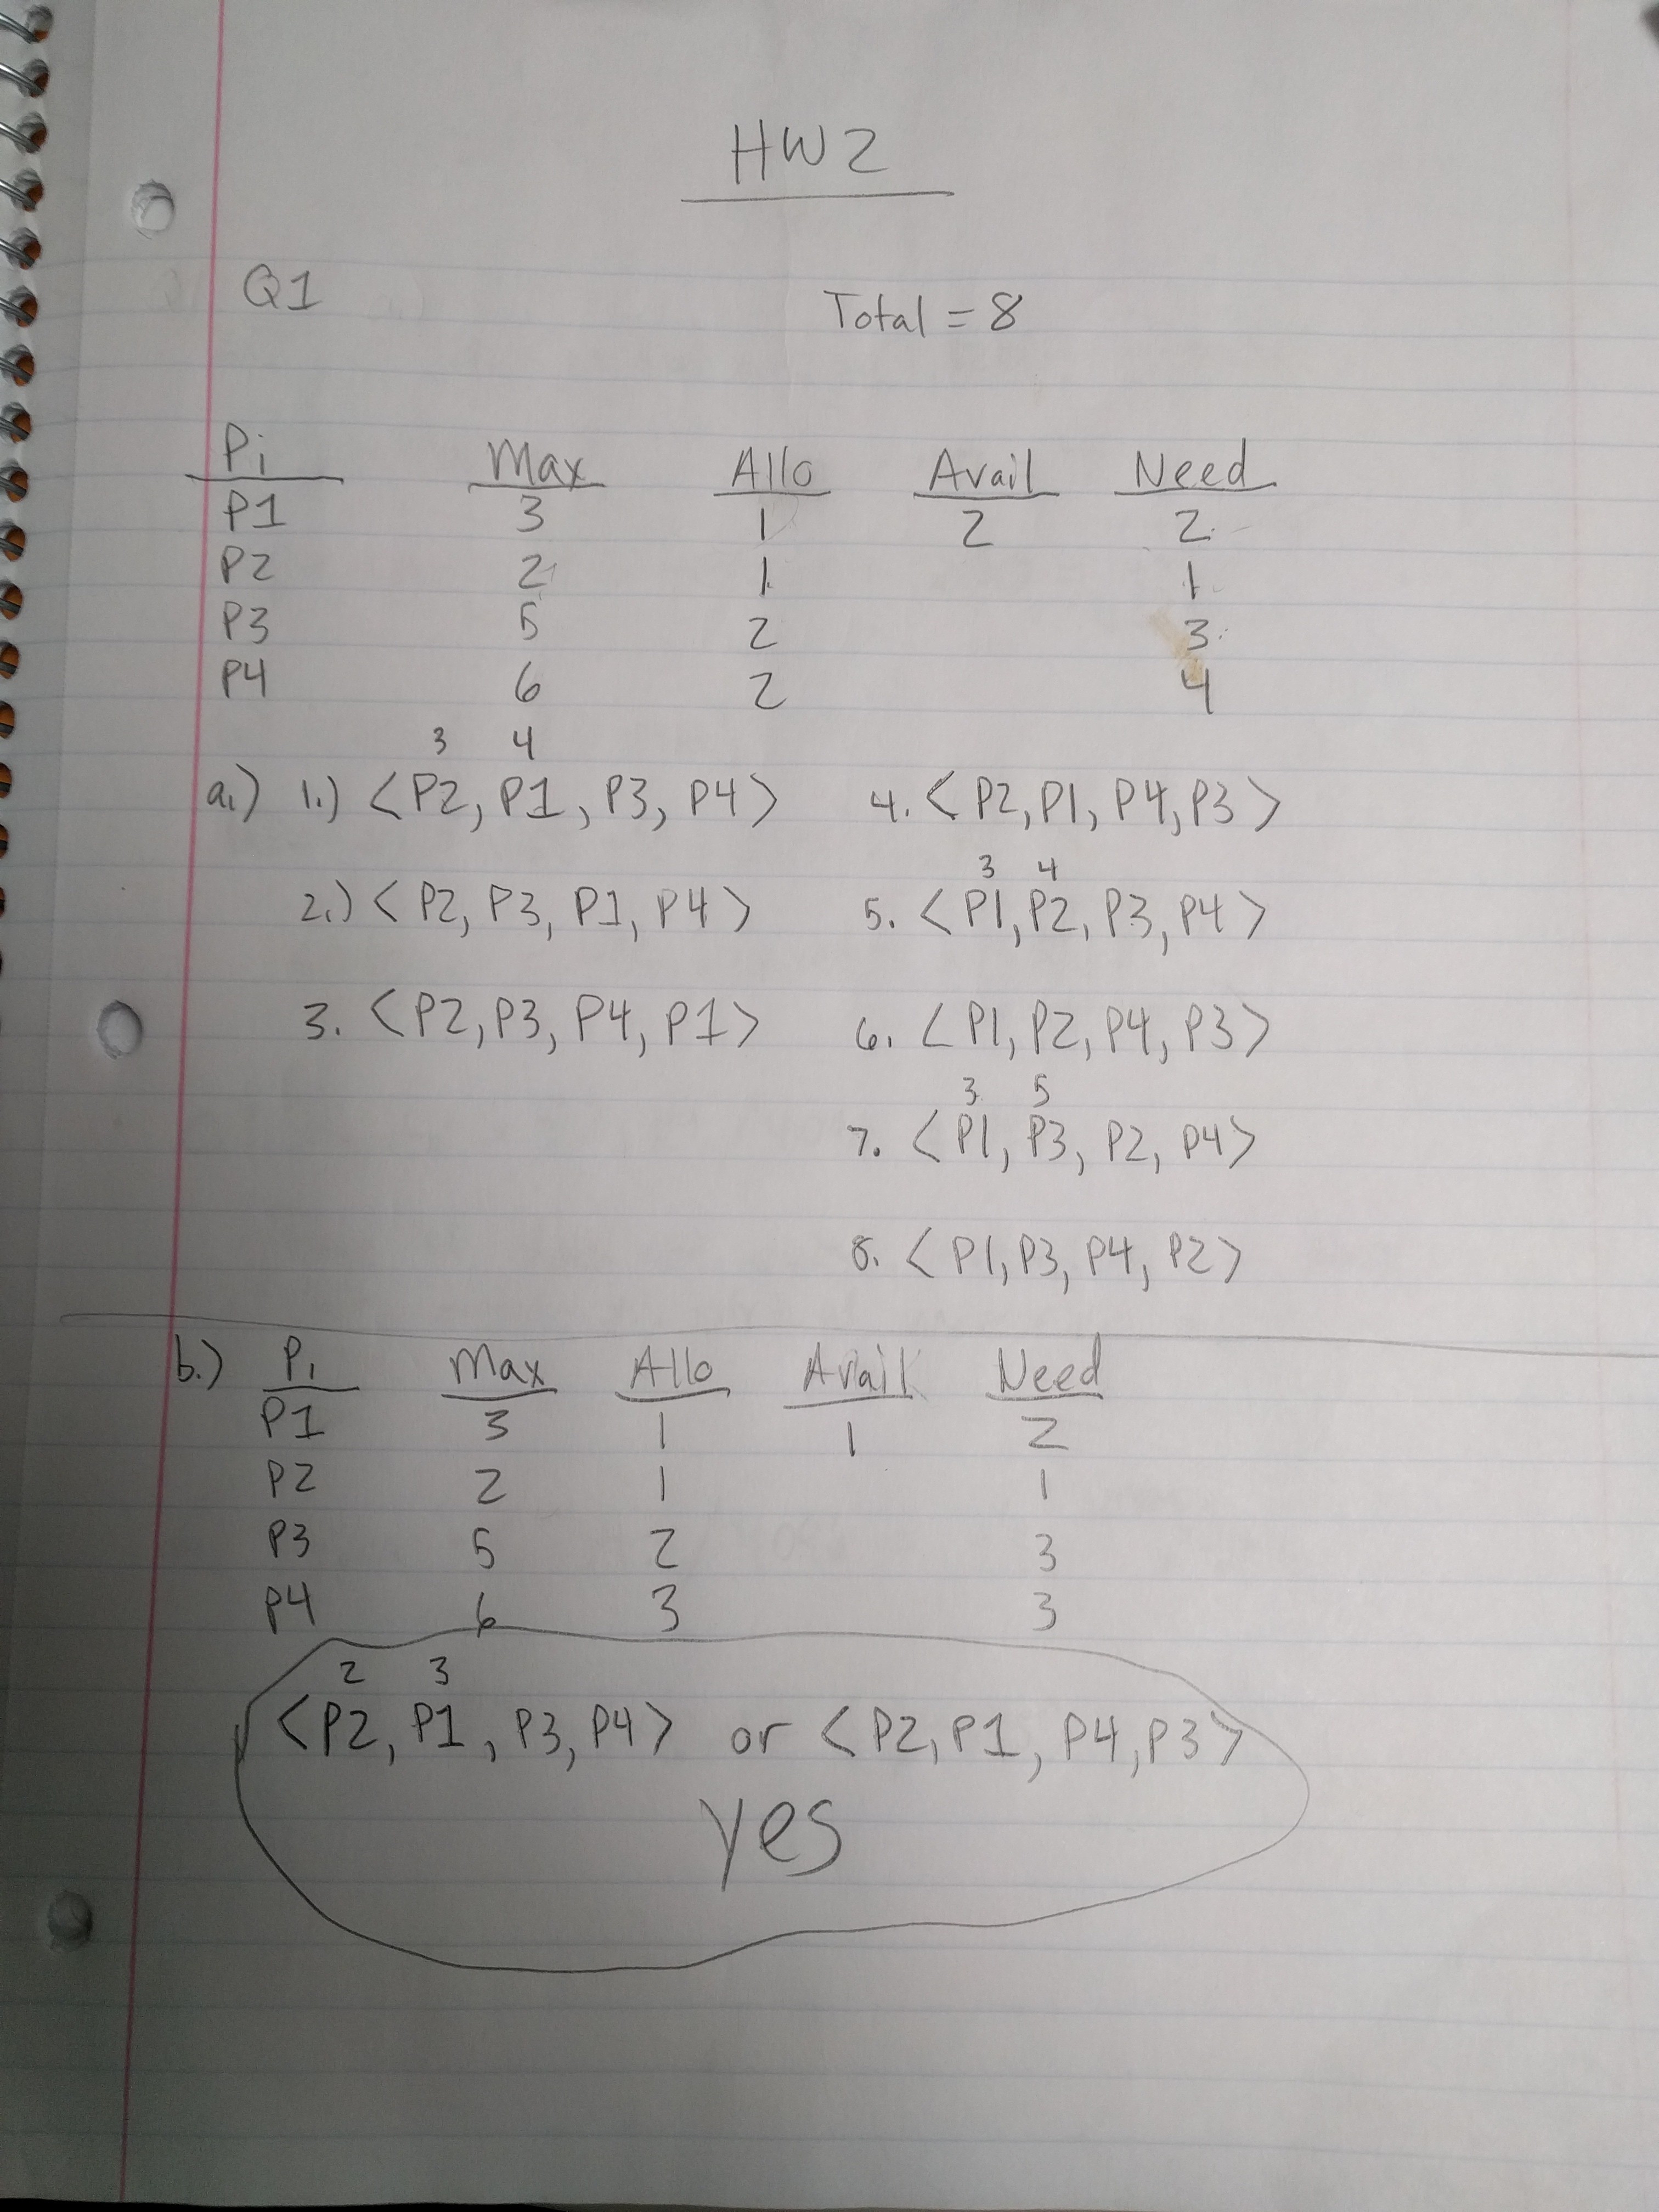 HW2
Q1 Total = 8
Pi Max Allo Avail Need
P1 3 1 2 2
P2 2 1 1
P3 5 2 3
P4 6 2 4
3 4
a.) 1.) <P2, P1, P3, P4> 4. <P2, P1, P4, P3>
3 4
2.) <P2, P3, P1, P4> 5. <P1, P2, P3, P4>
3. <P2, P3, P4, P1> 6. <P1, P2, P4, P3>
3 5
7. <P1, P3, P2, P4>
8. <P1, P3, P4, P2>
b.) Pi Max Allo Avail Need
P1 3 1 1 2
P2 2 1 1
P3 5 2 3
P4 6 3 3
2 3
<P2, P1, P3, P4> or <P2, P1, P4, P3>
yes